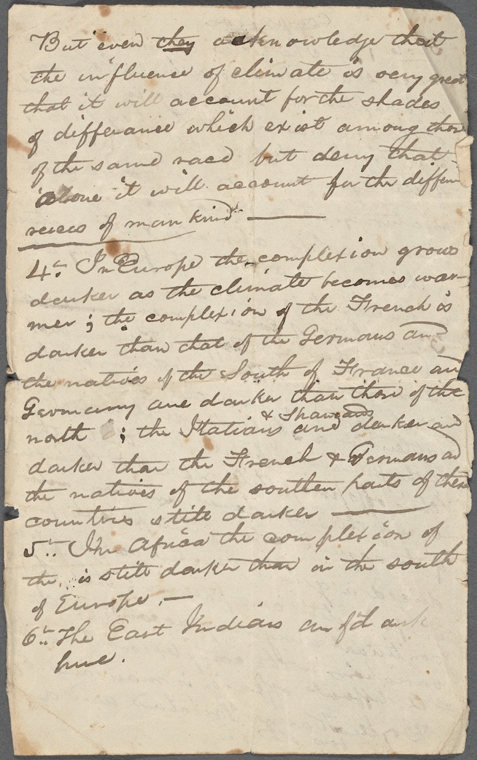 But even they acknowledge that
the influence of climate is very great
that it will account for the shades
of differance which exist among those
of the same race but deny that
alone it will account for the differn
races of mankind —
4th In Europe the complexion grows
darker as the climate becomes war-
mer ; the complexion of the French is
darker than that of the Germans and
the natives of the South of France an
Germany are darker than those of the
& Spaniards
north ; the Italians are darker and
darker than the French & Germans an
the natives of the southern parts of these
countries still darker —
5th In Africa the complexion of
the is still darker than in the south
of Europe. —
6th The East Indians are of dark
hue.